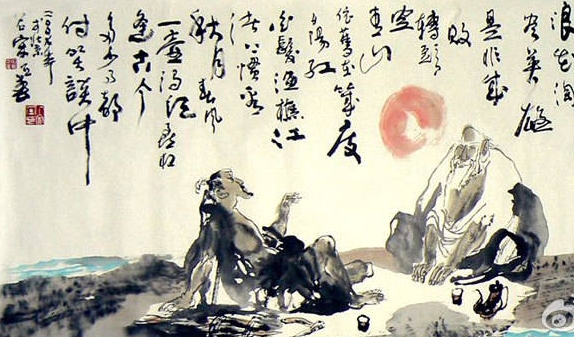 浪花淘
尽英雄
是非成
败
转头
空
青山
依旧在几度
夕阳红
白髮渔樵江
渚上惯看
秋月春风
一壶浊酒喜相
逢古今
多少事都
付笑谈中